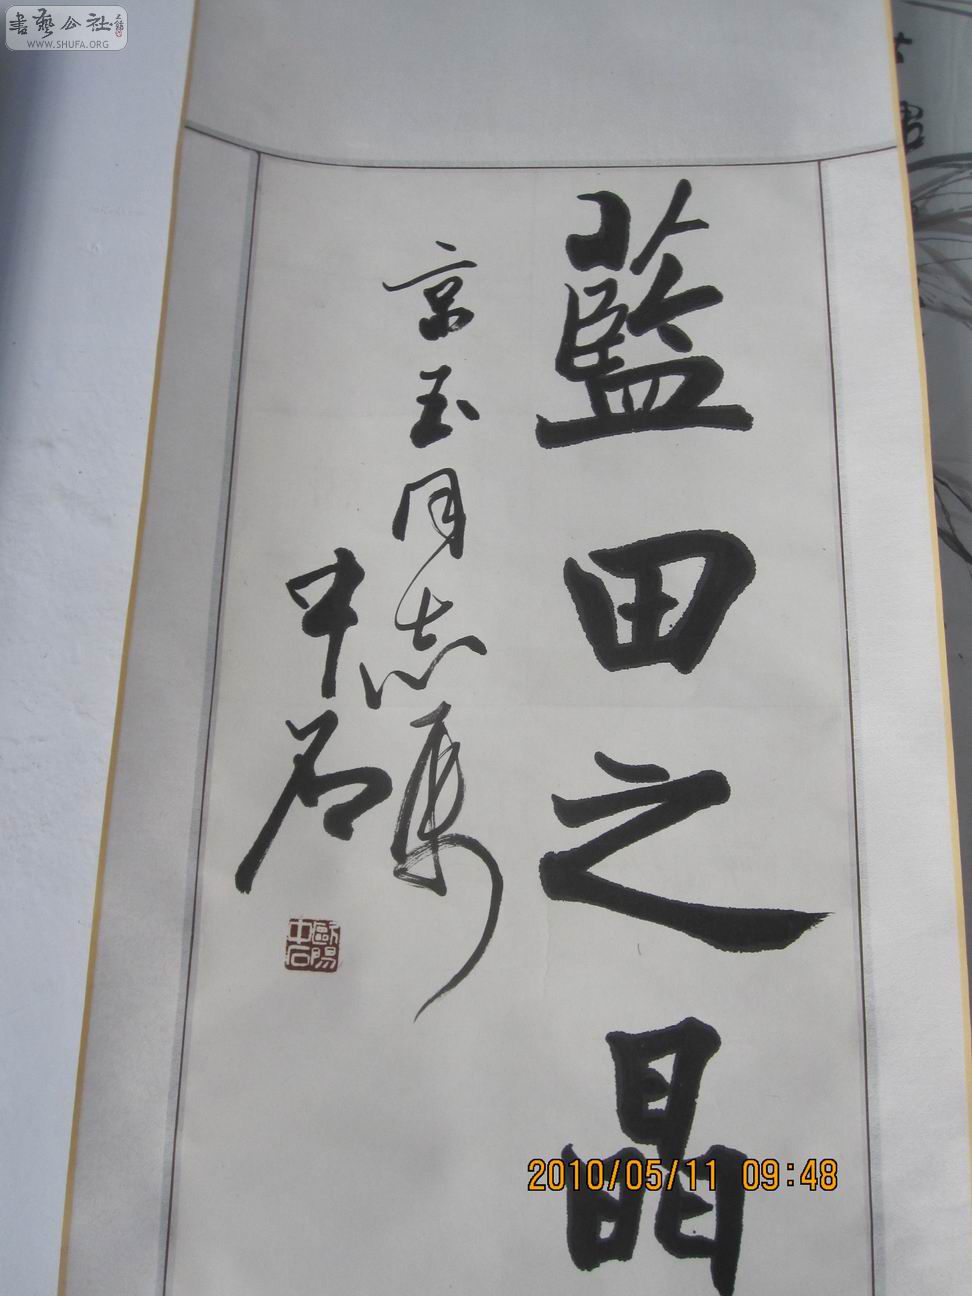 書藝公社
WWW.SHUFA.ORG
藍田之晶
京玉同志属
中石
歐陽中石
2010/05/11 09:48